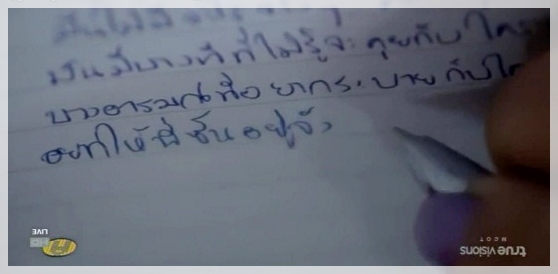 มันมีบางทีที่ไม่รู้จะคุยกับใคร
บางอารมณ์ที่อยากระบายกับใ
อยากให้พี่ชั้นอยู่จัง
LIVE
HD
true visions
NCGT